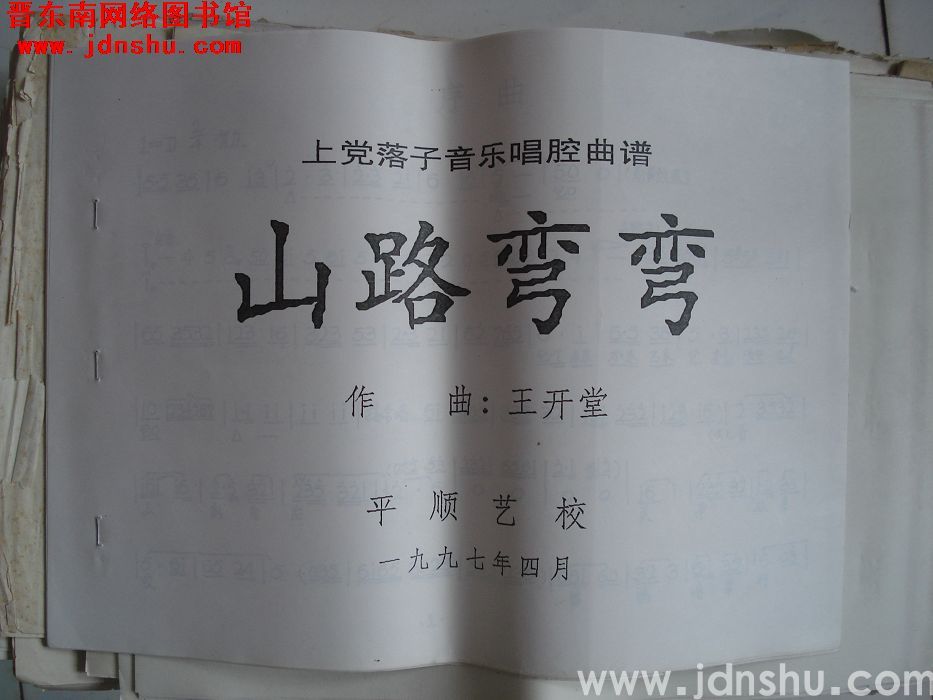 晋东南网络图书馆
www.jdnshu.com
上党落子音乐唱腔曲谱
山路弯弯
作 曲：王开堂
平顺艺校
一九九七年四月
www.jdnshu.com